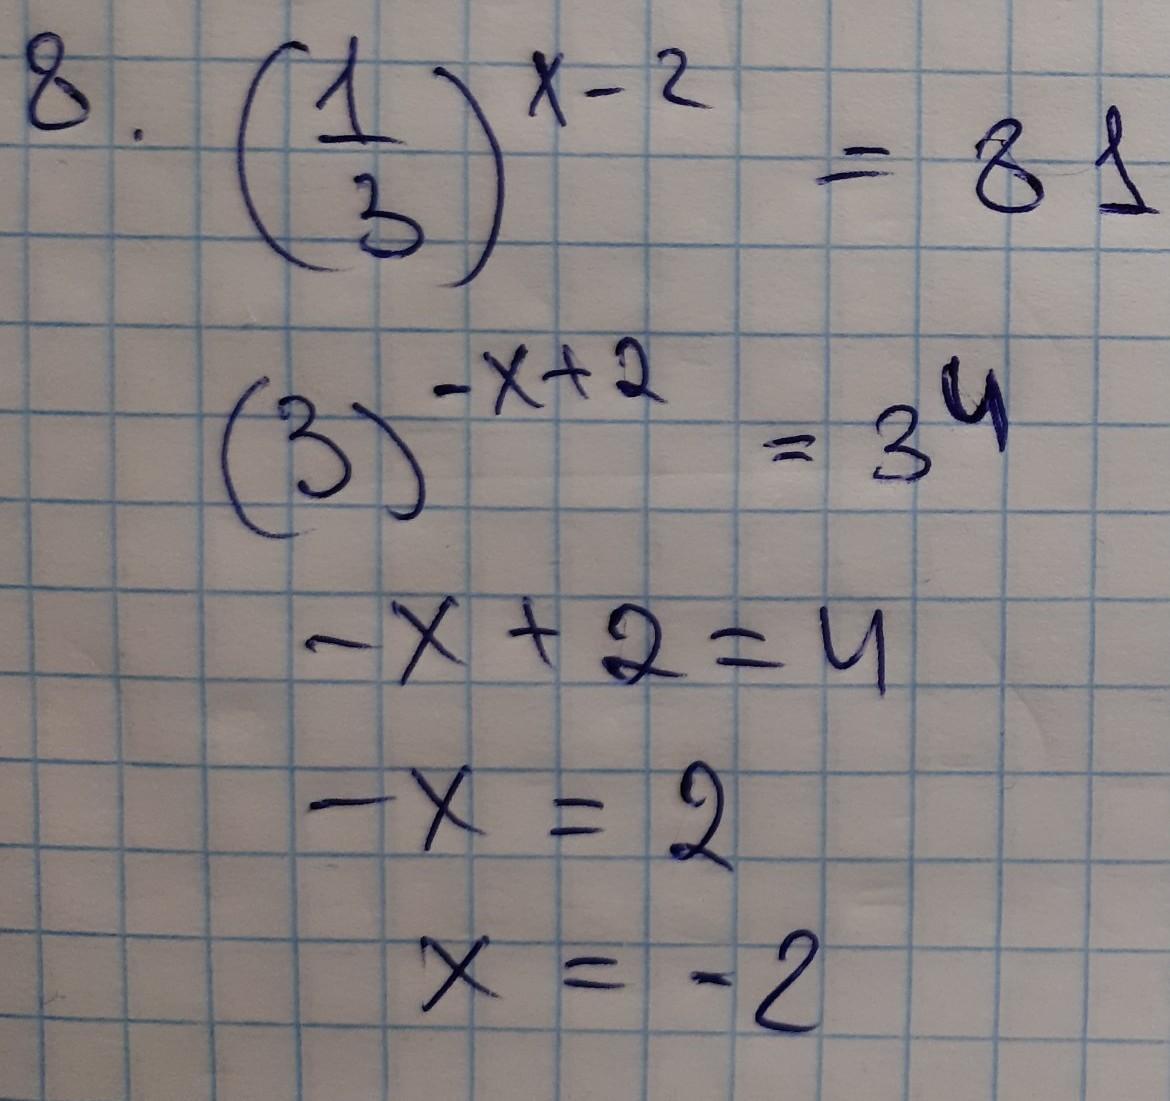 8. (1/3)^(x-2) = 81
(3)^(-x+2) = 3^4
-x + 2 = 4
-x = 2
x = -2